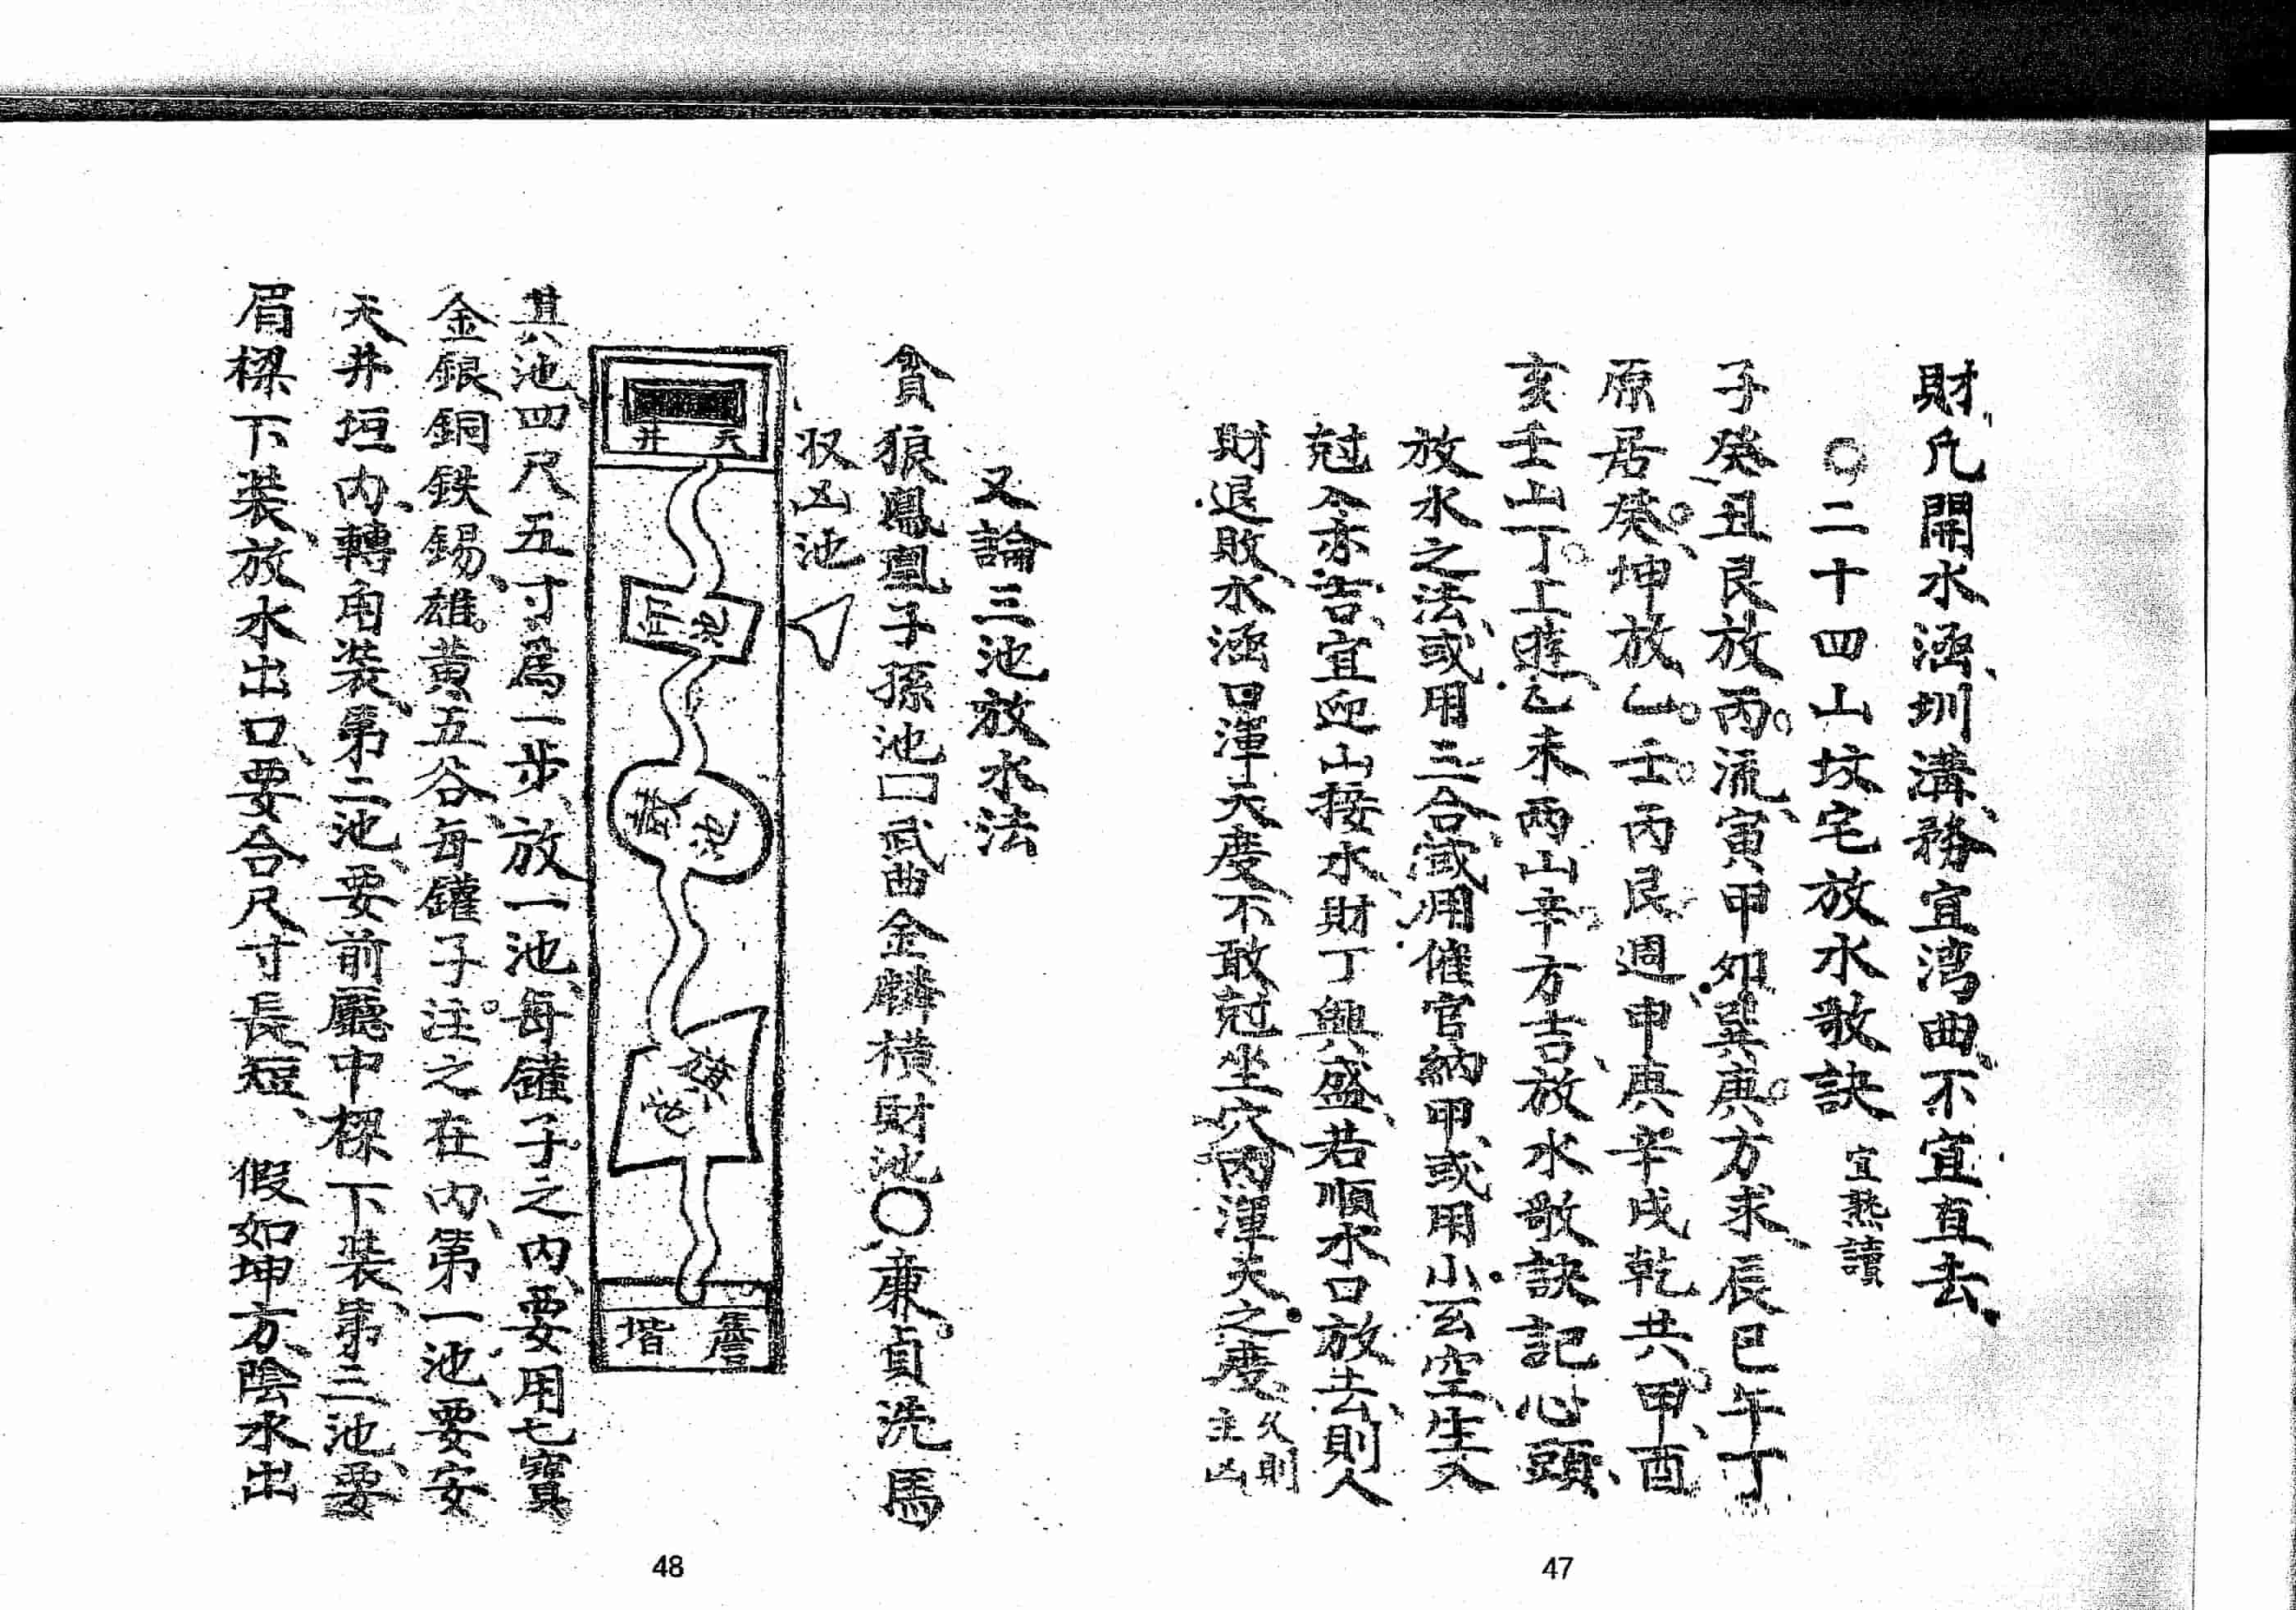 財凢開水涵圳溝務宜湾曲不宜直去
〇二十四山坟宅放水歌訣 宜熟讀
子癸丑艮放丙流寅甲夘巽庚方求辰巳午丁
原居癸坤放乙壬丙艮週申庚辛戍乾共甲酉
亥壬山丁上遊乙未兩山辛方吉放水歌訣記心頭
放水之法或用三合或用催官納甲或用小玄空生入
尅入亦吉宜迎山接水財丁興盛若順水口放去則人
財退敗水涵口渾天度不敢尅坐穴內渾天之度 久則
主凶
47
又論三池放水法
貪狼鳳凰子孫池口武曲金麟橫財池〇廉貞洗馬
収凶池
天井
池
池
池
簷堦
其池四尺五寸爲一步放一池每罐子之內要用七寶
金銀銅鉄錫雄黄五谷每罐子注之在內第一池要安
天井垣內轉角裝第二池要前廳中樑下裝第三池要
眉樑下裝放水出口要合尺寸長短 假如坤方陰水出
48